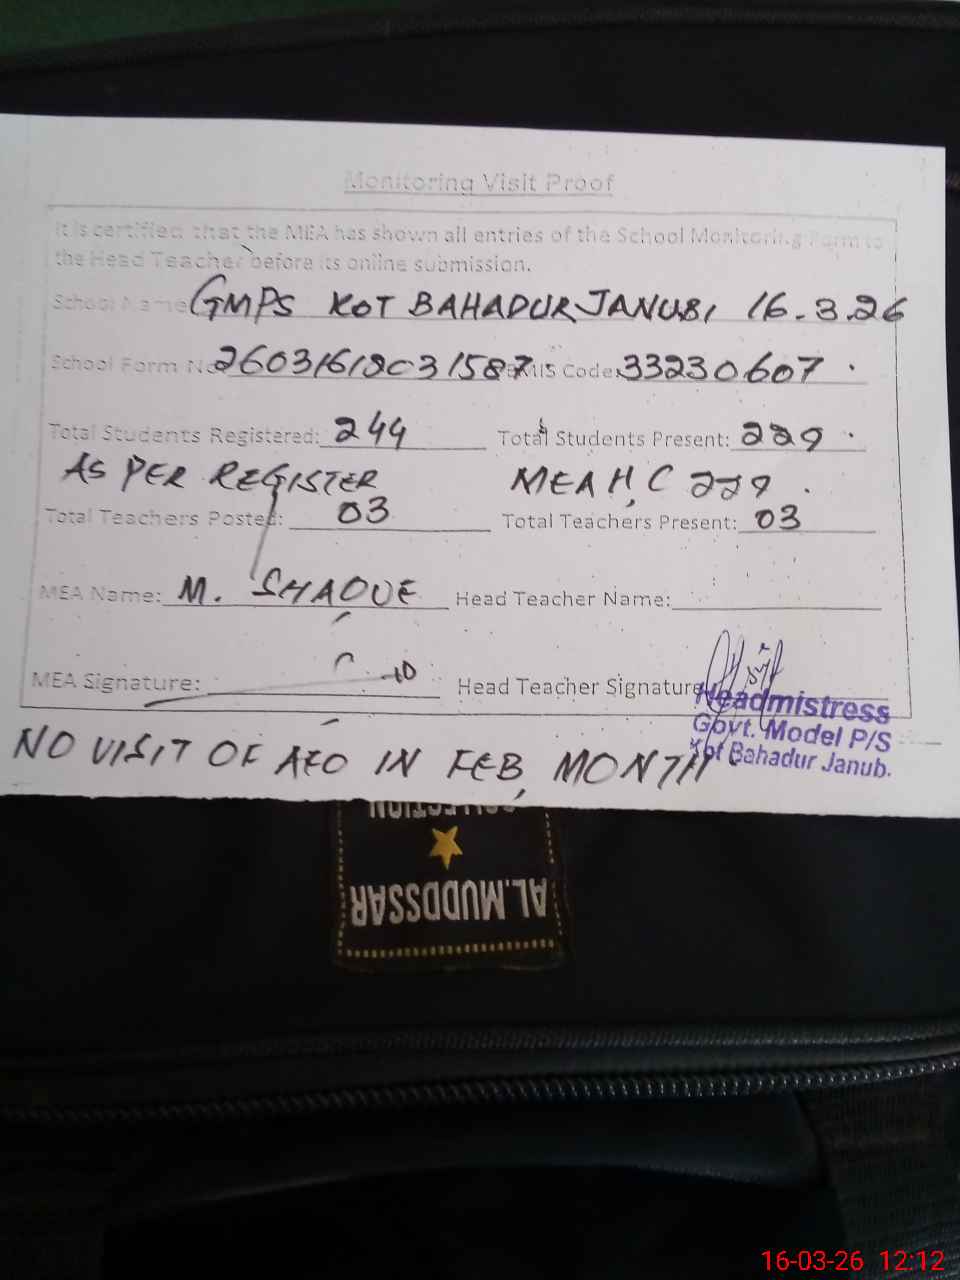 Monitoring Visit Proof
It is certified that the MEA has shown all entries of the School Monitoring Form to
the Head Teacher before its online submission.
School Name GMPS KOT BAHADUR JANUBI 16.3.26
School Form No 26031612031587 EMIS Code: 33230607
Total Students Registered: 244 Total Students Present: 229
AS PER REGISTER MEA H,C 229
Total Teachers Posted: 03 Total Teachers Present: 03
MEA Name: M. SHAQUE Head Teacher Name:
MEA Signature: Head Teacher Signature
Headmistress
Govt. Model P/S
Kot Bahadur Janub.
NO VISIT OF AEO IN FEB, MONTH
COLLECTION
AL.MUDDSSAR
16-03-26 12:12